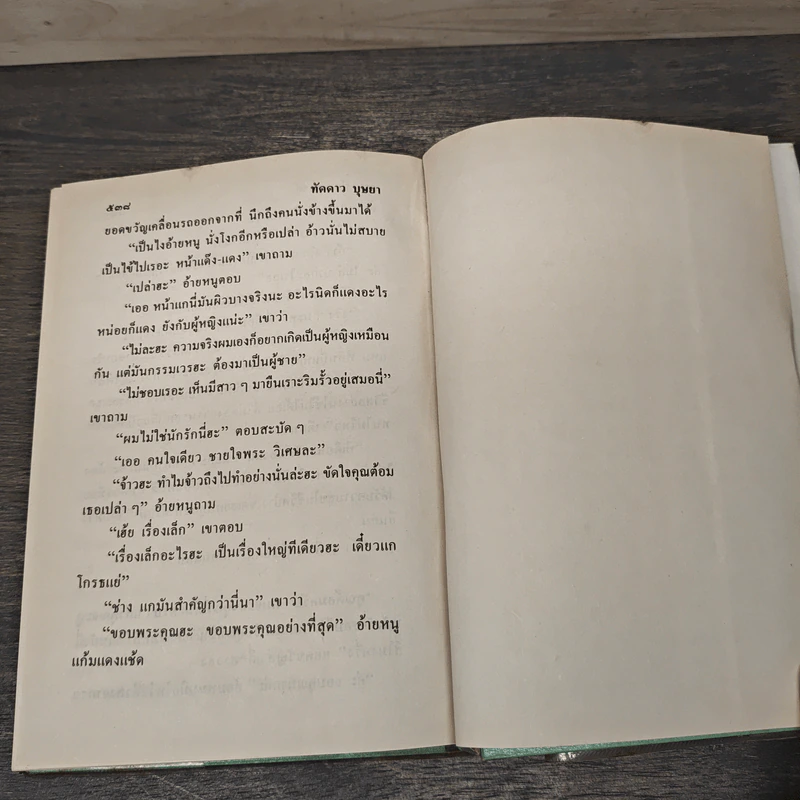 ๕๓๘
ทัดดาว บุษยา
ยอดขวัญเคลื่อนรถออกจากที่ นึกถึงคนนั่งข้างขึ้นมาได้
“เป็นไงอ้ายหนู นั่งโงกอีกหรือเปล่า อ้าวนั่นไม่สบาย
เป็นไข้ไปเรอะ หน้าแด๊ง-แดง” เขาถาม
“เปล่าฮะ” อ้ายหนูตอบ
“เออ หน้าแกนี่มันผิวบางจริงนะ อะไรนิดก็แดงอะไร
หน่อยก็แดง ยังกับผู้หญิงแน่ะ” เขาว่า
“ไม่ละฮะ ความจริงผมเองก็อยากเกิดเป็นผู้หญิงเหมือน
กัน แต่มันกรรมเวรฮะ ต้องมาเป็นผู้ชาย”
“ไม่ชอบเรอะ เห็นมีสาว ๆ มายืนเราะริมรั้วอยู่เสมอนี่”
เขาถาม
“ผมไม่ใช่นักรักนี่ฮะ” ตอบสะบัด ๆ
“เออ คนใจเดียว ชายใจพระ วิเศษละ”
“จ้าวฮะ ทำไมจ้าวถึงไปทำอย่างนั่นล่ะฮะ ขัดใจคุณต้อม
เธอเปล่า ๆ” อ้ายหนูถาม
“เฮ้ย เรื่องเล็ก” เขาตอบ
“เรื่องเล็กอะไรฮะ เป็นเรื่องใหญ่ทีเดียวฮะ เดี๋ยวแก
โกรธแย่”
“ช่าง แกมันสำคัญกว่านี่นา” เขาว่า
“ขอบพระคุณฮะ ขอบพระคุณอย่างที่สุด” อ้ายหนู
แก้มแดงแช้ด